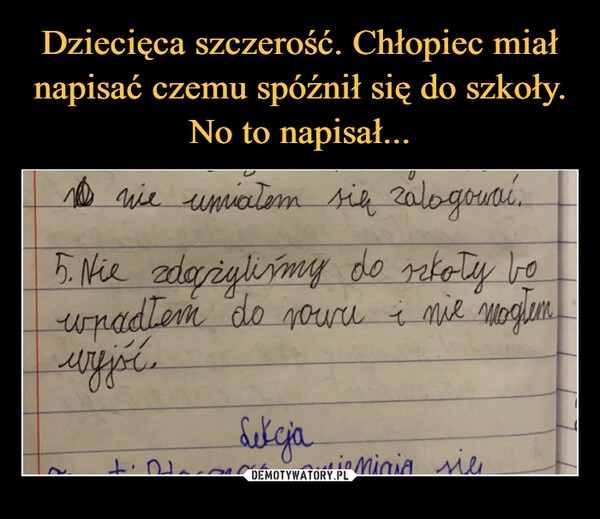 Dziecięca szczerość. Chłopiec miał
napisać czemu spóźnił się do szkoły.
No to napisał...
nie umiałem się zalogować.
5. Nie zdążyliśmy do szkoły bo
wpadłem do rowu i nie mogłem
wyjść.
Lekcja
się
DEMOTYWATORY.PL